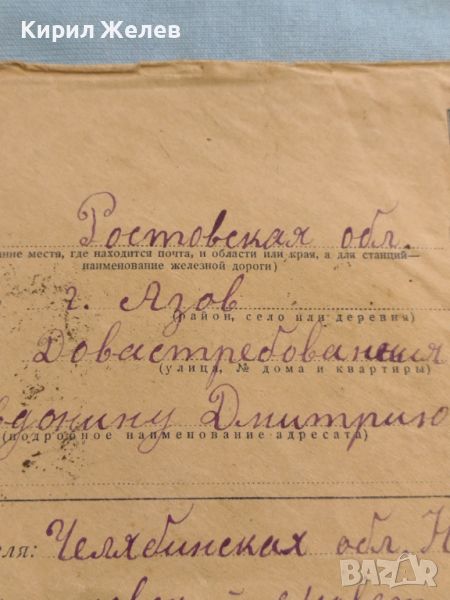 Кирил Желев
Ростовская обл.
ание места, где находится почта, и области или края, а для станций—
наименование железной дороги)
г. Азов
(район, село или деревня)
Довастребования
(улица, № дома и квартиры)
вдонину Дмитрию
(подробное наименование адресата)
еля: Челябинская обл. Н
bazar